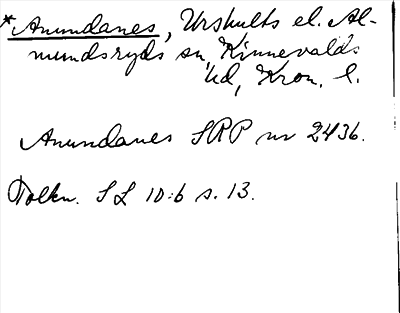 *Anundanes, Urshults el. Al-
mundsryds sn, Kinnevalds
hd, Kron. l.
Anundanes SRP nr 2436.
Tolkn. SL 10:6 s. 13.